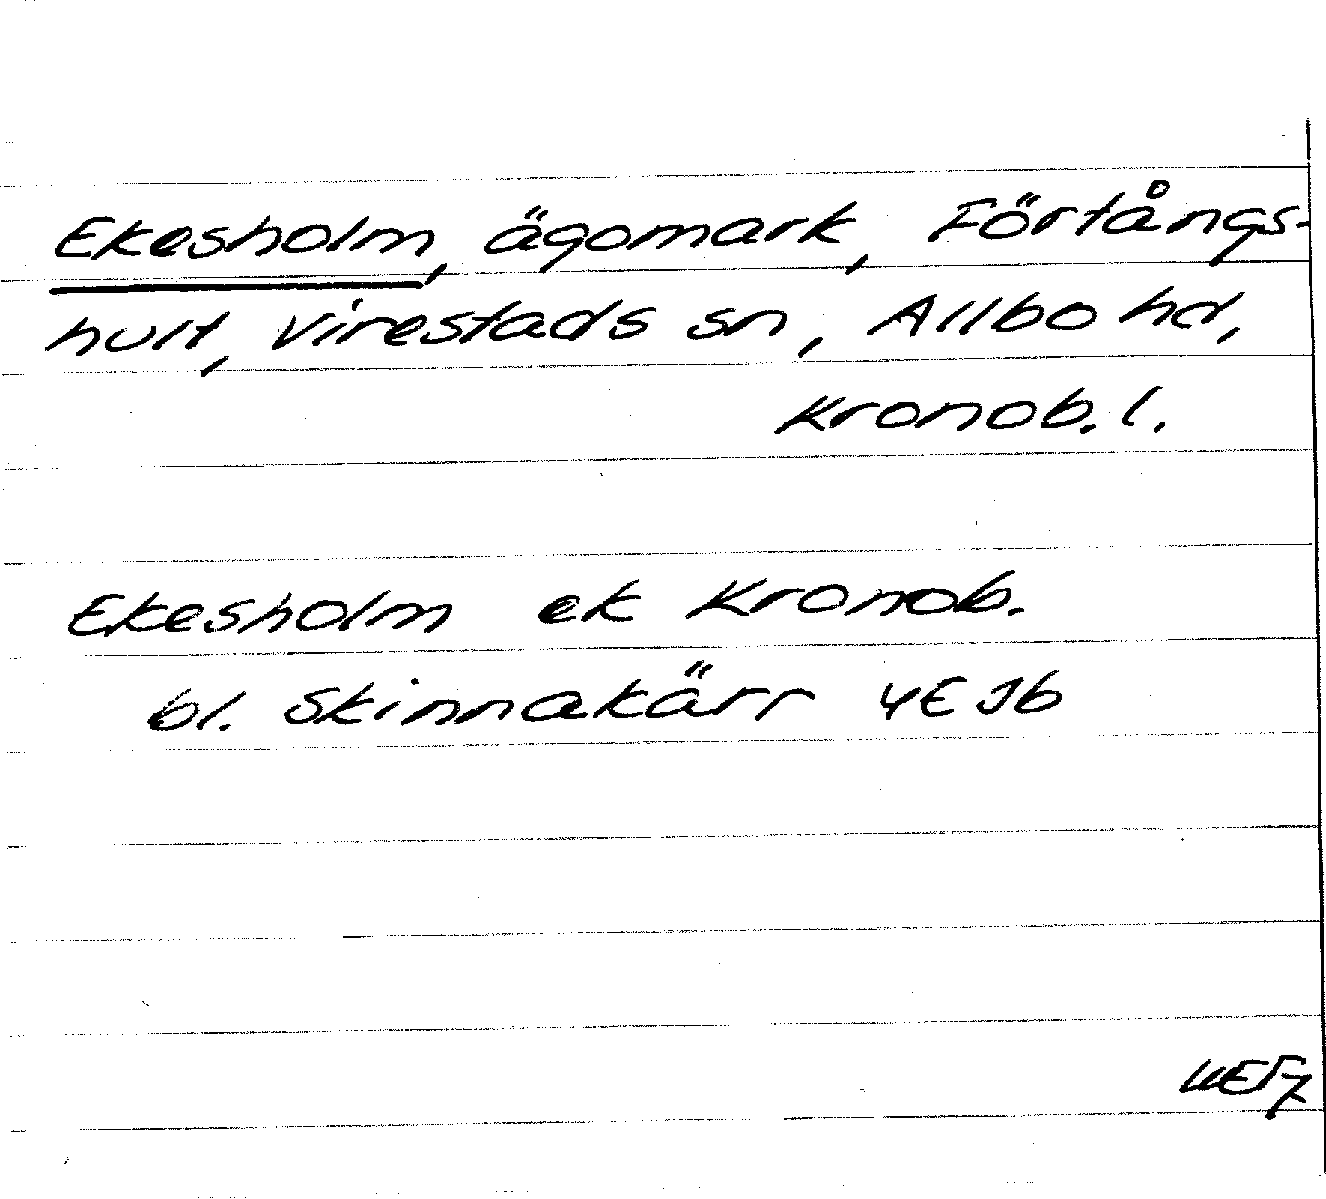 Ekesholm, ägomark, Förtångs-
hult, Virestads sn, Allbo hd,
Kronob. l.
Ekesholm ek Kronob.
bl. Skinnakärr 4E Jb